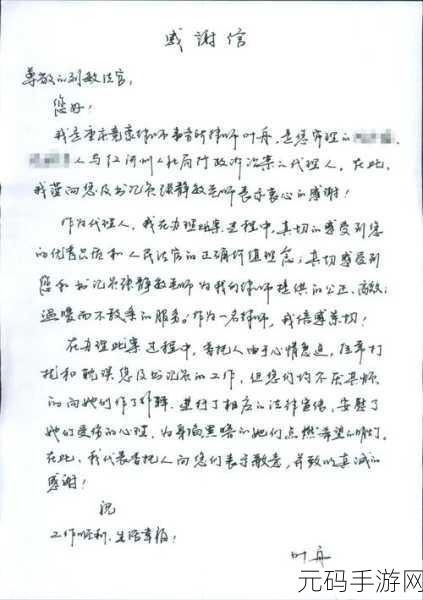 感謝信
尊敬的刘敏法官:
您好!
我是重庆竞豪律师事务所律师叶舟,是您审理的
人与红河州人社局行政诉讼案之代理人。在此,
我谨向您及书记员张静敏老师表示衷心的感谢!
作为代理人,我在办理此案过程中,真切的感受到您
的优秀品质和人民法官的正确价值理念;真切感受到
您和书记员张静敏老师为我们律师提供的公正、高效、
温暖而不敷衍的服务。作为一名律师,我倍感亲切!
在办理此案过程中,委托人由于心情急迫,经常打
扰和耽误您及书记员的工作,但您们均不厌其烦
的向她们作了解释,进行了相应的法律宣传,安慰了
她们受伤的心理,为身陷黑暗的她们点燃希望的明灯。
在此,我代表委托人向您们表示敬意,并致以真诚的
感谢!
祝
工作顺利、生活幸福!
叶舟
元码手游网